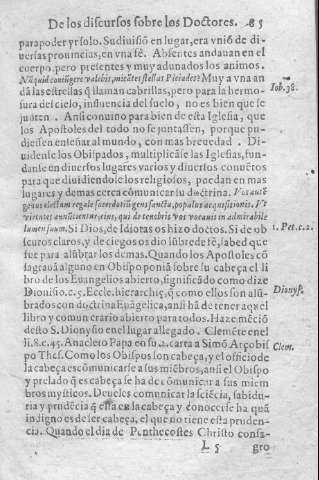 De los discursos sobre los Doctores. 85
para poder yr solo. Su diuisió en lugar, era vnió de di-
uersas prouincias, en vna fé. Absentes andauan en el
cuerpo, pero presentes y muy adunados los animos.
Núquid coniúgere valebis, micátes stellas Pleiades? Muy a vna an
dá las estrellas q̃ llaman cabrillas, pero para la hermo-
sura del cielo, influencia del suelo, no es bien que se
junten. Ansi conuino para bien de esta Iglesia, que
los Apostoles del todo no se juntassen, porque pu-
diessen enseñar al mundo, con mas breuedad. Di-
uidense los Obispados, multiplicáse las Iglesias, fun-
danse en diuersos lugares varios y diuersos conuétos
para que diuidiendose los religiosos, puedan en mas
lugares y demas cerca cómunicar su doctrina. Vos autẽ
genus electum regale sacerdotiũ gens sancta, populus acquisitionis. Vt
virtutes annũtietis eius, qui de tenebris vos vocauit in admirabile
lumen suum. Si Dios, de Idiotas os hizo doctos. Si de ob
scuros claros, y de ciegos os dio lũbre de fé, sabed que
fue para alũbrar los demas. Quando los Apostoles có
sagrauã alguno en Obispo poniã sobre su cabeça el li
bro de los Euangelios abierto, significãdo como dize
Dionisio. c. 5. Eccle. hierarchię, q̃ como ellos son alũ-
brados con doctrina Euãgelica, ansi hã de tener aq̃l
libro y comun erario abierto para todos. Haze méció
desto S. Dionysio en el lugar allegado. Clemẽte en el
li. 8. c. 45. Anacleto Papa en su 2. carta a Simó Arçobis
po Thes. Como los Obispos son cabeça, y el officio de
la cabeça es cómunicarse a sus miẽbros, ansi el Obispo
y prelado q̃ es cabeça se ha de cómunicar a sus miem
bros mysticos. Deueles comunicar la sciécia, sabidu-
ria y prudẽcia q̃ está en la cabeça y conocerse ha quã
indigno es de ser cabeça, el que no tiene esta pruden-
cia. Quando el dia de Penthecostes Christo consa-
L 5 gro
Iob. 38.
1. Pet. c. 2.
Dionys.
Clem.